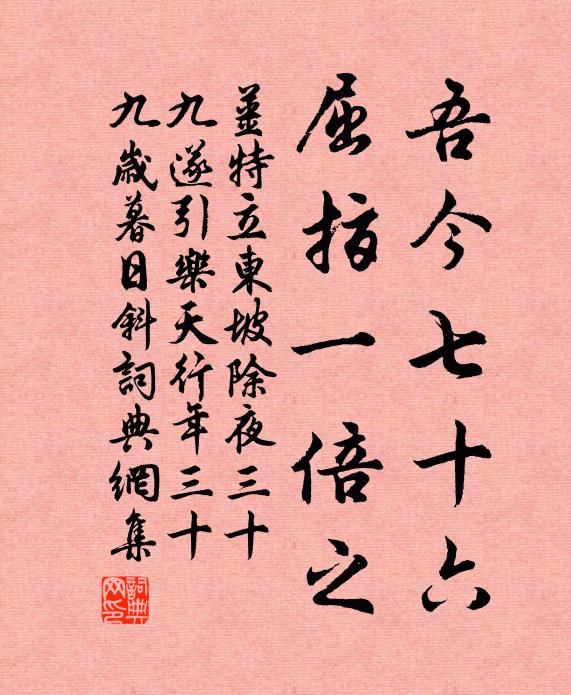 吾今七十六
屈指一倍之
姜特立東坡除夜三十
九遂引樂天行年三十
九歳暮日斜詞典網集
詞典網印